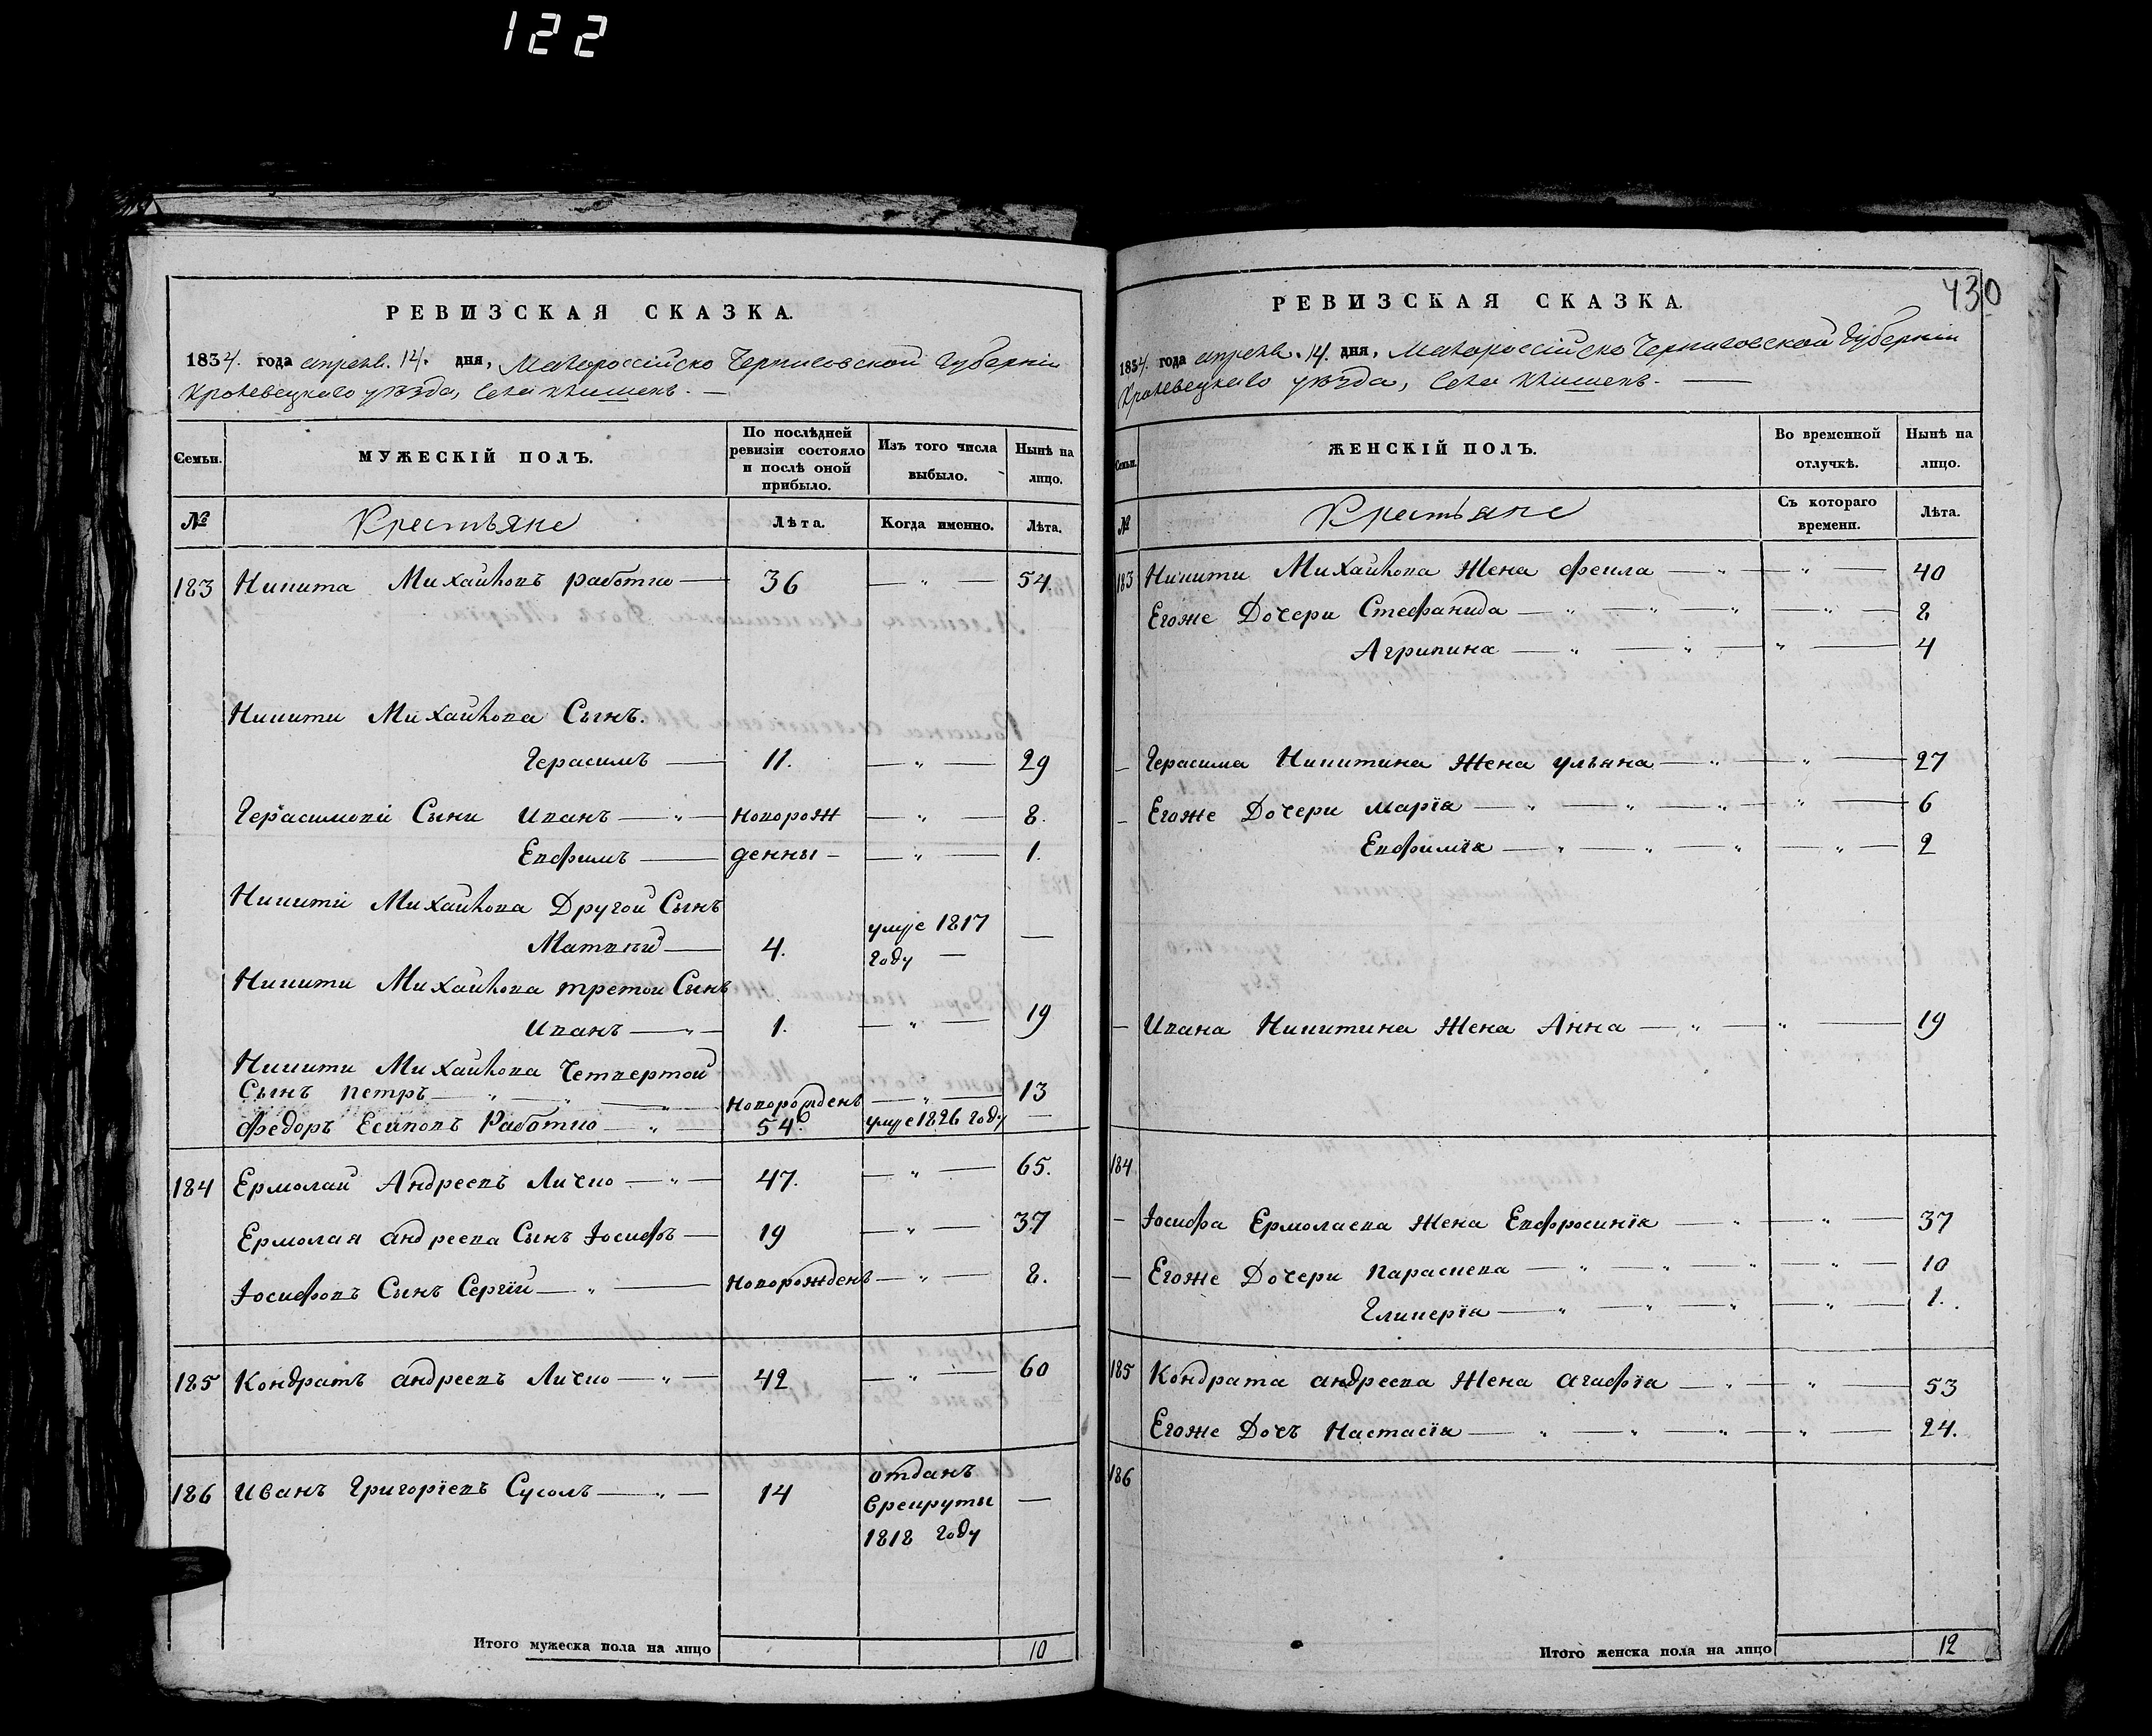 122
РЕВИЗСКАЯ СКАЗКА.
1834. года апреля. 14. дня, Малороссійско Черниговской Губерніи
Кролевецкаго уѣзда, Села Клишекъ. —
Семьи. МУЖЕСКІЙ ПОЛЪ. По послѣдней ревизіи состояло и послѣ оной прибыло. Изъ того числа выбыло. Нынѣ на лицо.
№ Крестьяне Лѣта. Когда именно. Лѣта.
183 Никита Михайловъ работко — 36 — „ — 54
Никити Михайлова Сынъ.
Герасимъ — 11. — „ — 29
Герасимови Сыни Иванъ — „ — новорож — „ — 8.
Евфимъ — денны — — „ — 1.
Никити Михайлова Другой Сынъ
Матвѣй — 4. умре 1817 году — —
Никити Михайлова третои Сынъ
Иванъ — „ — 1. — „ — 19
Никити Михайлова Четвертой
Сынъ петръ — „ — „ — „ — новорожденъ — „ — 13
Федоръ Есиповъ Работко — „ — 54. умре 1826 году —
184 Ермолай Андреевъ Личко — „ — 47. — „ — 65.
Ермолая андреева Сынъ Іосифъ — 19 — „ — 37
Іосифовъ Сынъ Сергїй — „ — новорожденъ — „ — 8.
185 Кондратъ андреевъ Личко — „ — 42 — „ — 60
186 Иванъ Григорїевъ Сусолъ — „ — 14 отданъ врекруты 1818 году —
Итого мужеска пола на лицо 10
430
РЕВИЗСКАЯ СКАЗКА.
1834. года апреля. 14. дня, Малороссійско Черниговской Губерніи
Кролевецкаго уѣзда, Села Клишекъ. —
Семьи. ЖЕНСКІЙ ПОЛЪ. Во временной отлучкѣ. Нынѣ на лицо.
№ Крестьяне Съ котораго времени. Лѣта.
183 Никити Михайлова Жена фекла — „ — „ — 40
Егоже Дочери Стефанида — „ — „ — „ — „ — 8
Агрипина — „ — „ — „ — 4
— Герасима Никитина Жена ульяна — „ — „ — 27
— Егоже Дочери марїя — „ — „ — „ — „ — 6
Евфимїя — „ — „ — „ — „ — 2
— Ивана Никитина Жена Анна — „ — „ — 19
184
— Іосифа Ермолаева Жена Евфросинїя — „ — „ — 37
— Егоже Дочери параскева — „ — „ — „ — „ — 10
Гликерїя — „ — „ — „ — „ — 1.
185 Кондрата андреева Жена агафїя — „ — „ — 53
Егоже Дочъ Настасїя — „ — „ — „ — „ — 24.
186
Итого женска пола на лицо 12